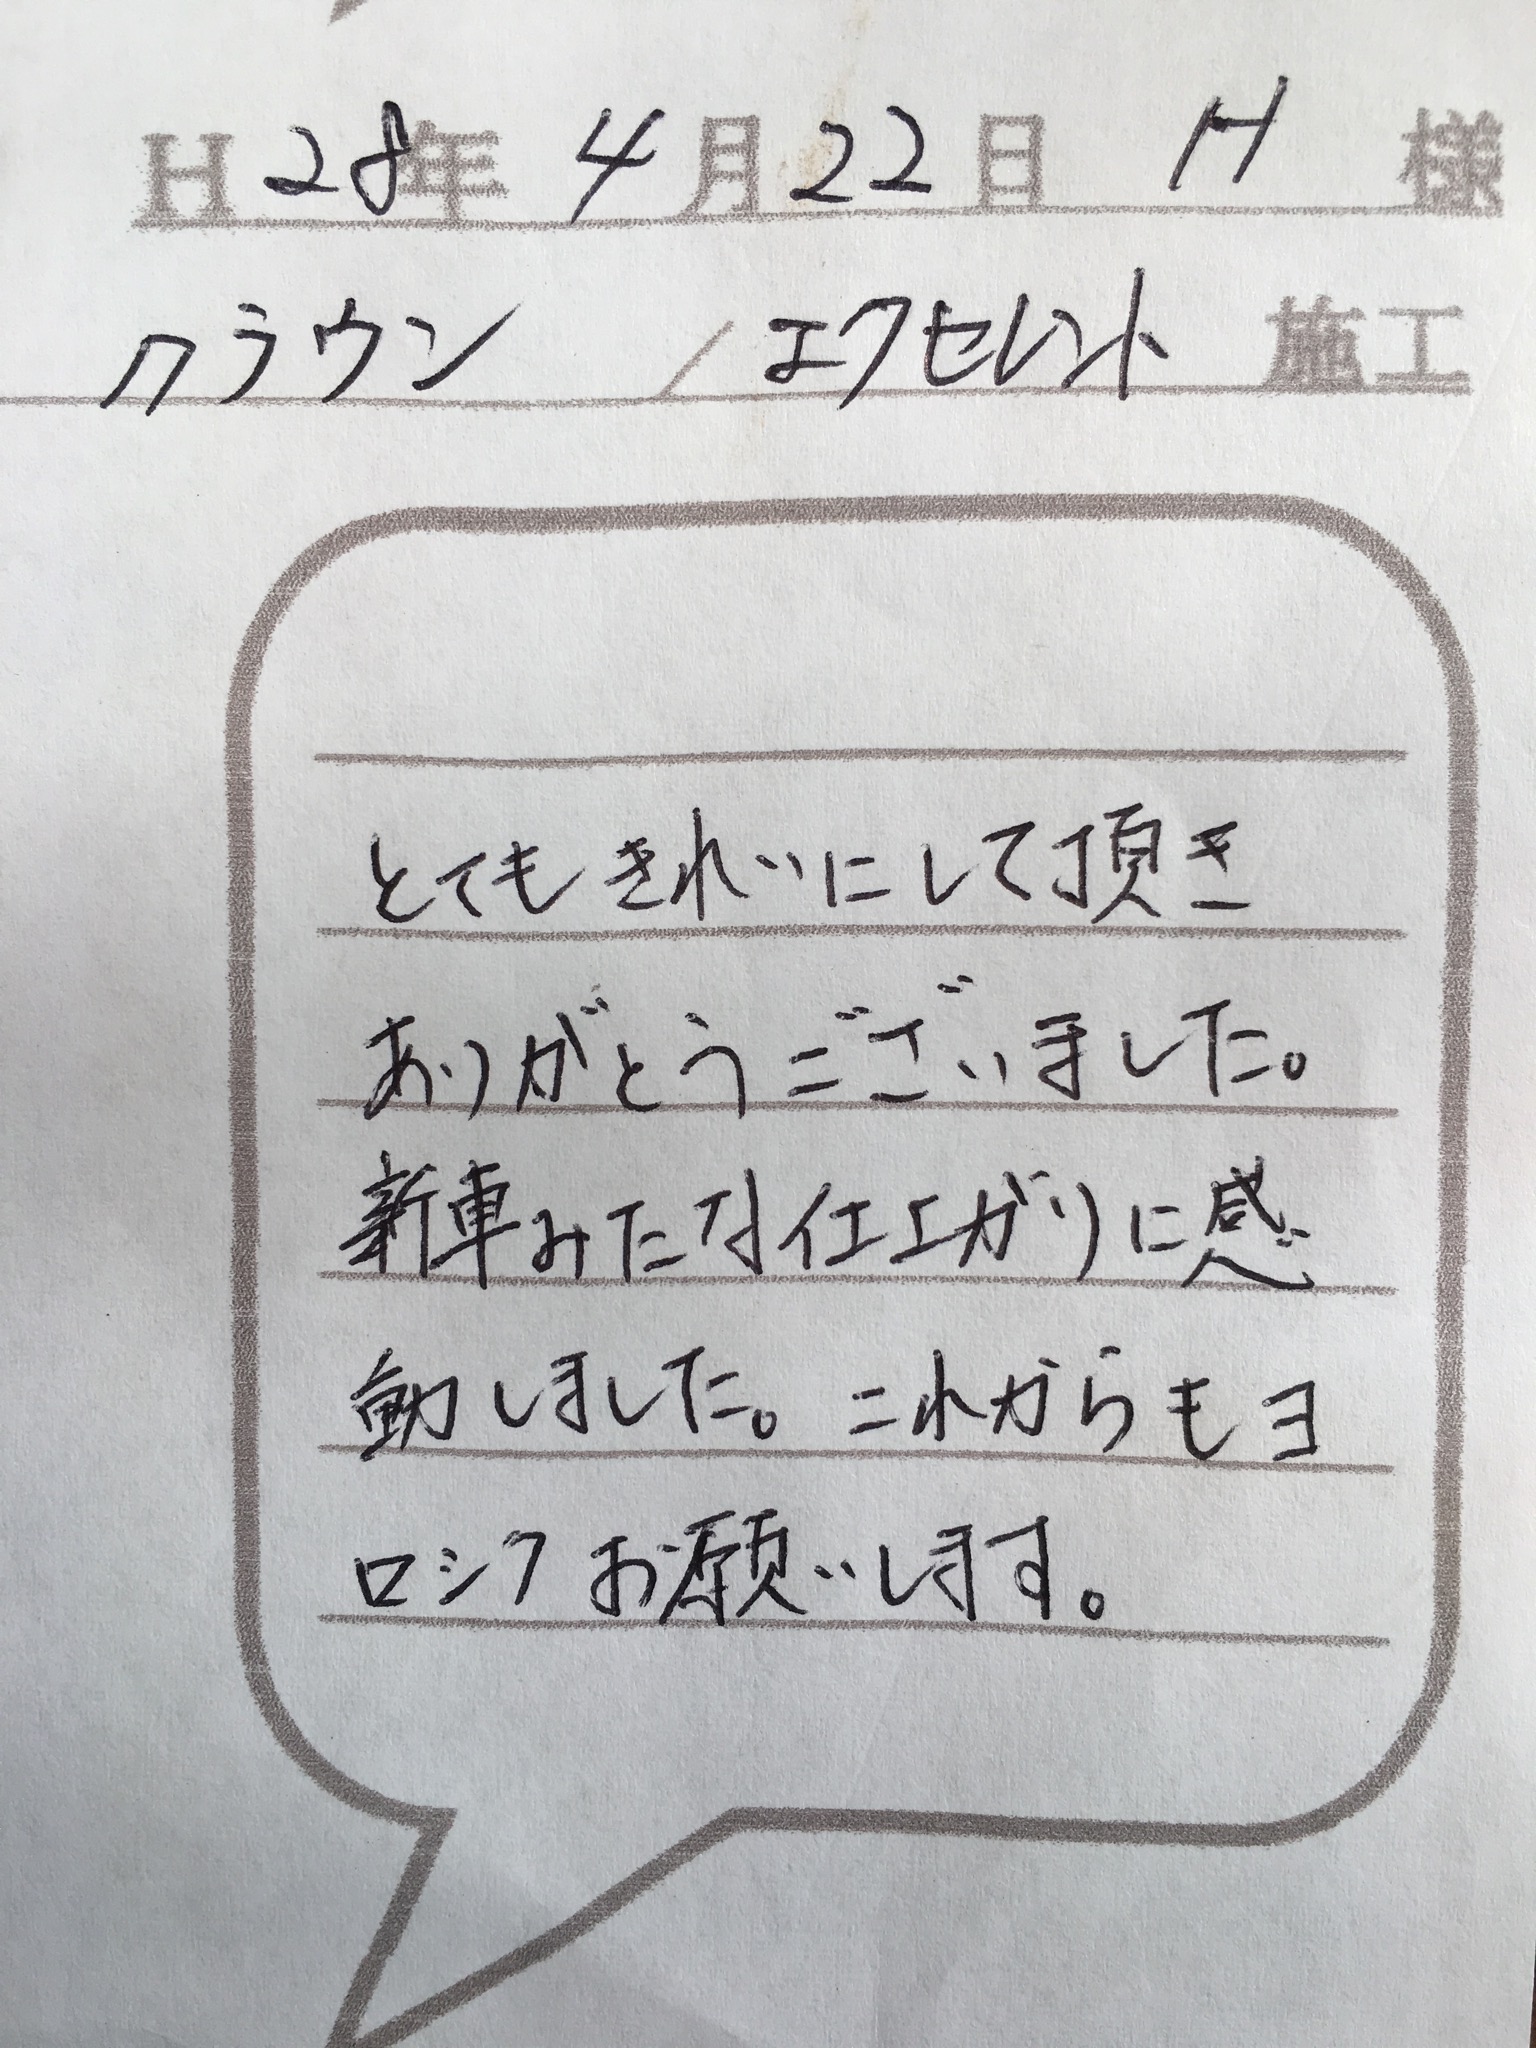 H 28年 4月22日 H 様
クラウン / エクセレント 施工
とてもきれいにして頂き
ありがとうございました。
新車みたな仕上がりに感
動しました。これからもヨ
ロシクお願いします。